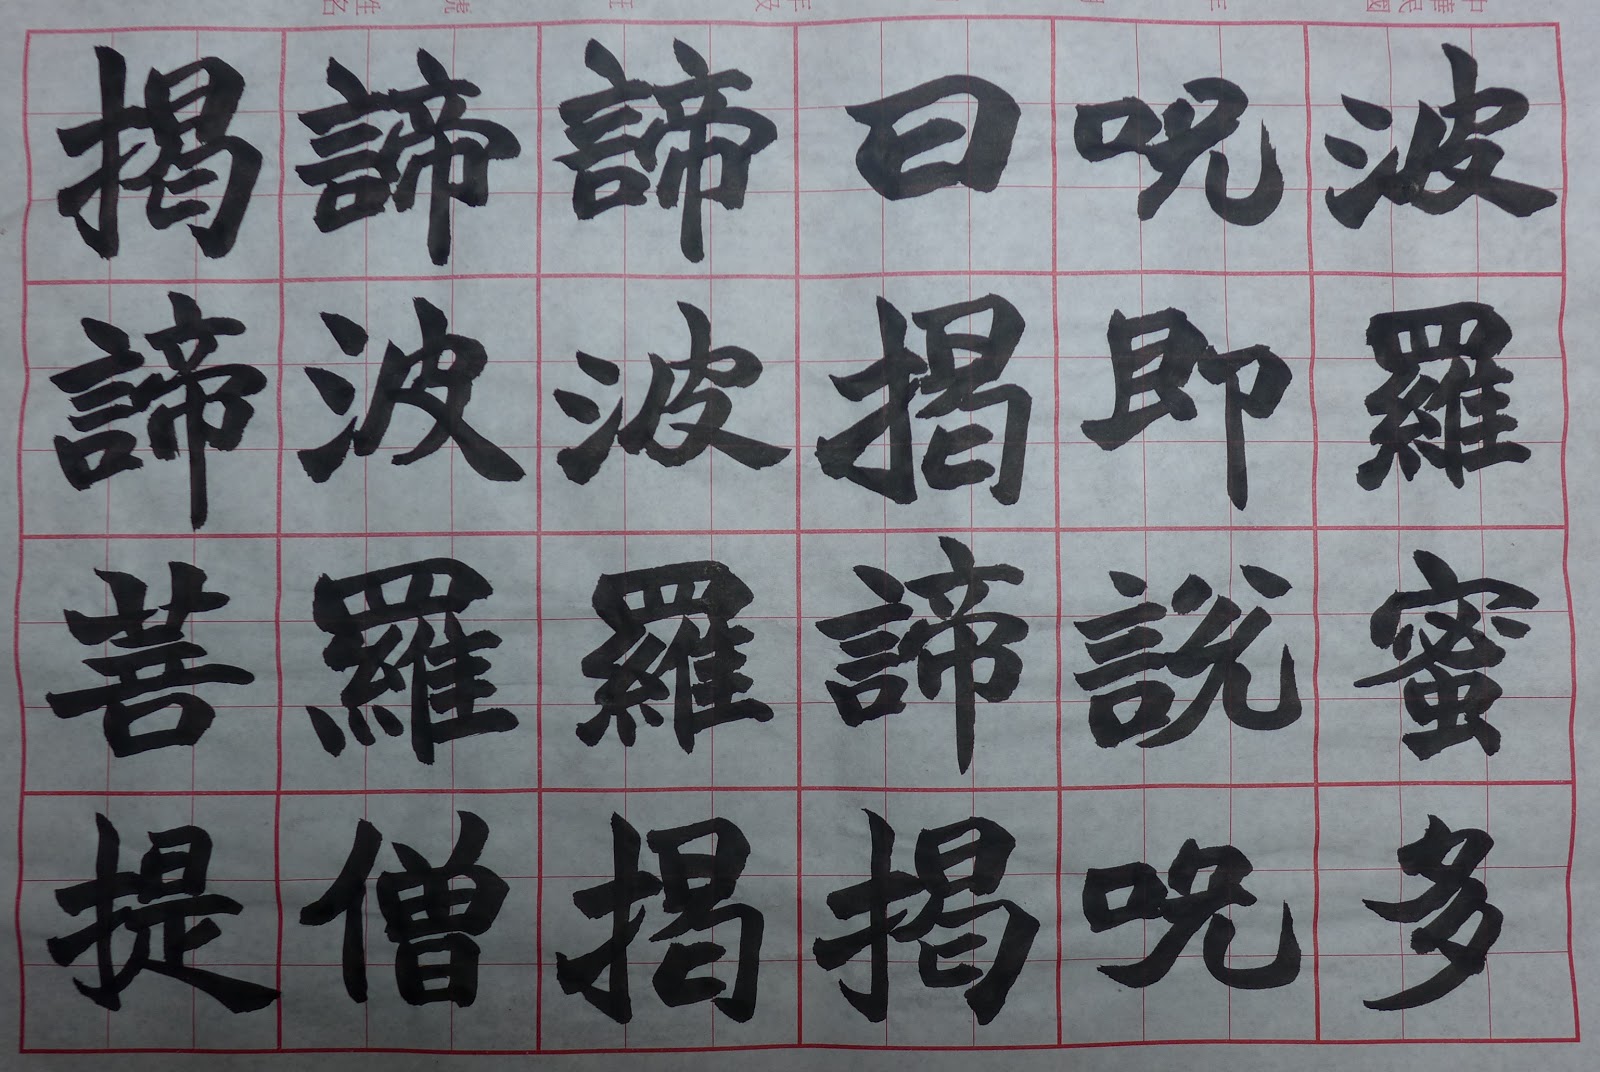 波羅蜜多
呪即說呪
曰揭諦揭
諦波羅揭
諦波羅僧
揭諦菩提